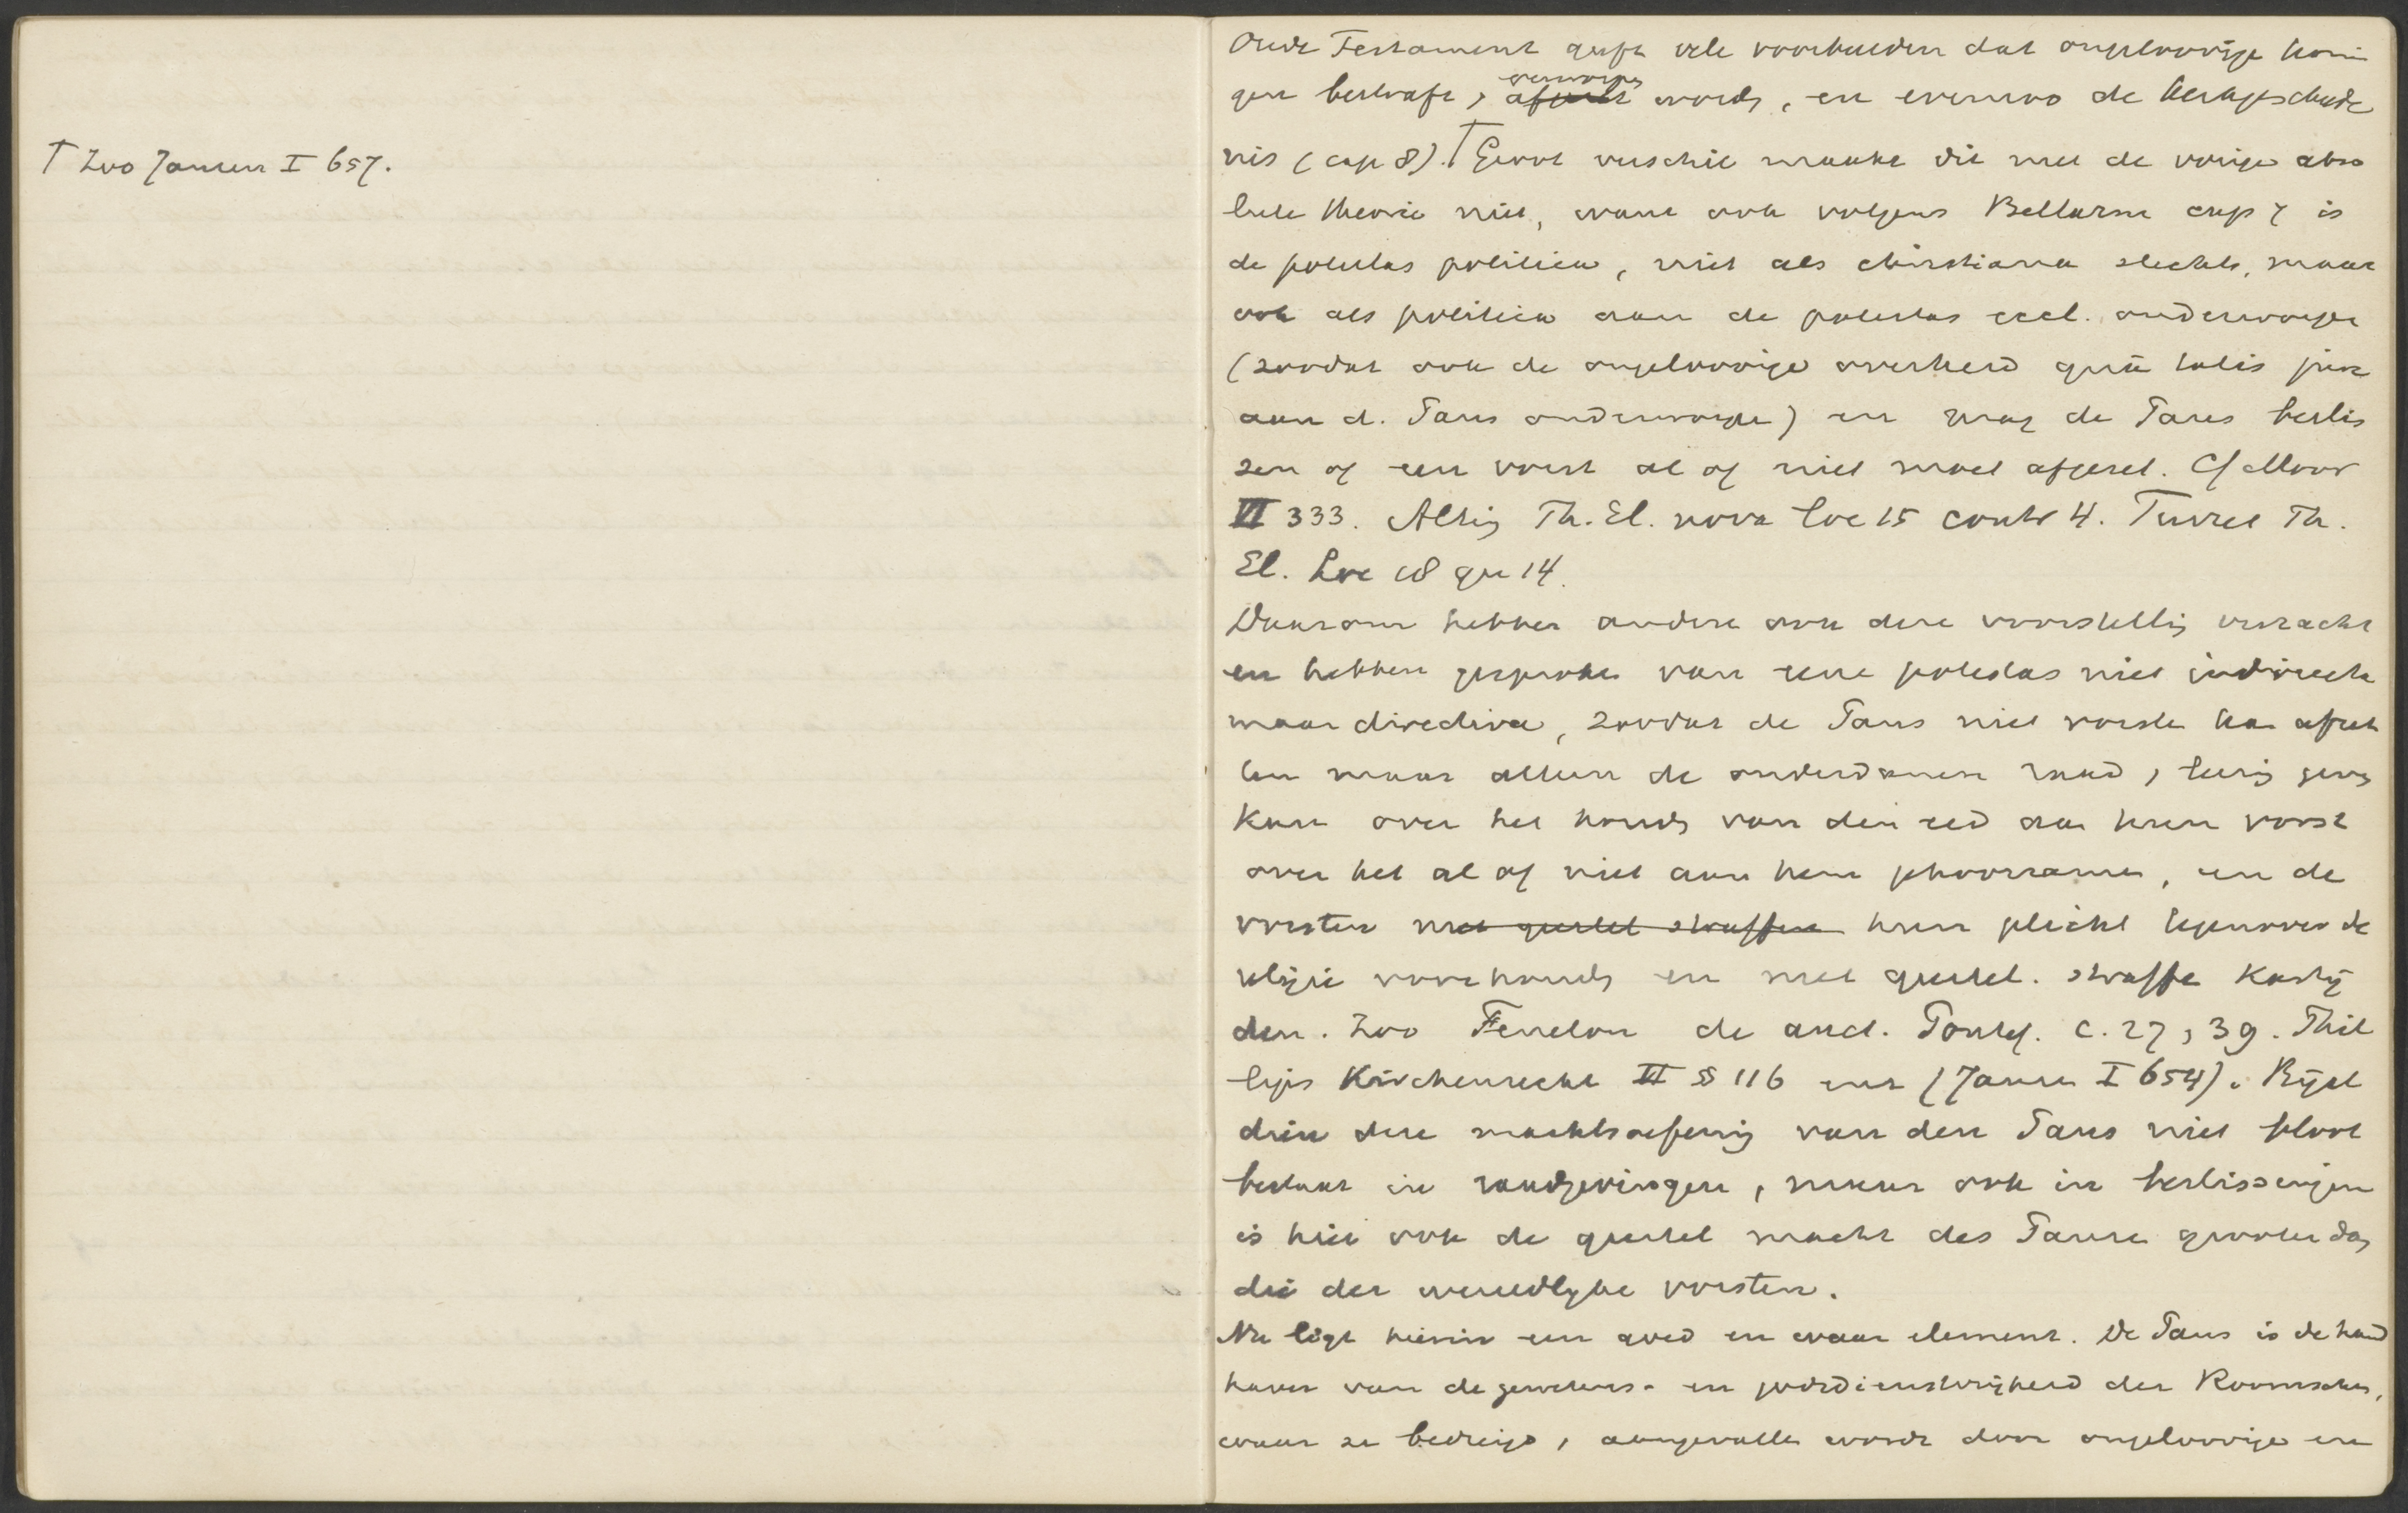 † Zoo Jansen I 657.
Oude Testament geeft vele voorbeelden dat ongeloovige konin
gen bestraft, verworpen afgezet words, en evenzoo de kerkgeschiede
nis (cap 8).† Groot verschil maakt dit met de vorige abso
lute theorie niet, want ook volgens Bellarm cap 7 is
de potestas politica, niet als christiana slechts, maar
ook als politica aan de potestas eccl. onderworpen
(zoodat ook de ongeloovige overheid quâ talis jure
aan d. Paus onderworpen) en mag de Paus beslis
sen of een vorst al of niet moet afgezet. Cf Moor
VI 333. Alting Th. El. nova loc 15 contr 4. Turret Th.
El. Loc 18 qu 14.
Daarom hebben andere ook deze voorstelling verzacht
en hebben gesproken van eene potestas niet indirecta
maar directiva, zoodat de Paus niet vorsten kan afzet
ten maar alleen de onderdanen raad, leering geven
kan over het houden van den eed aan hunn vorst
over het al of niet aan hem gehoorzamen, en de
vorsten met geestel straffen hunn plicht tegenover de
religie voorhouden en met geestel. straffe kastij
den. Zoo Fenelon de auct. Pontif. c. 27, 39. Phil
lips Kirchenrecht II § 116 enz (Jansen I 654). Bijal
dien deze machtsoefening van den Paus niet bloot
bestaat in raadgevingen, maar ook in beslissingen
is hier ook de geestel macht des Pausen grooter dan
die der wereldlijke vorsten.
Nu ligt hierin een goed en waar element. De Paus is de hand
haver van de gewetens- en godsdienstvrijheid der Roomschen,
waar ze bedreigd, aangevallen wordt door ongeloovige en